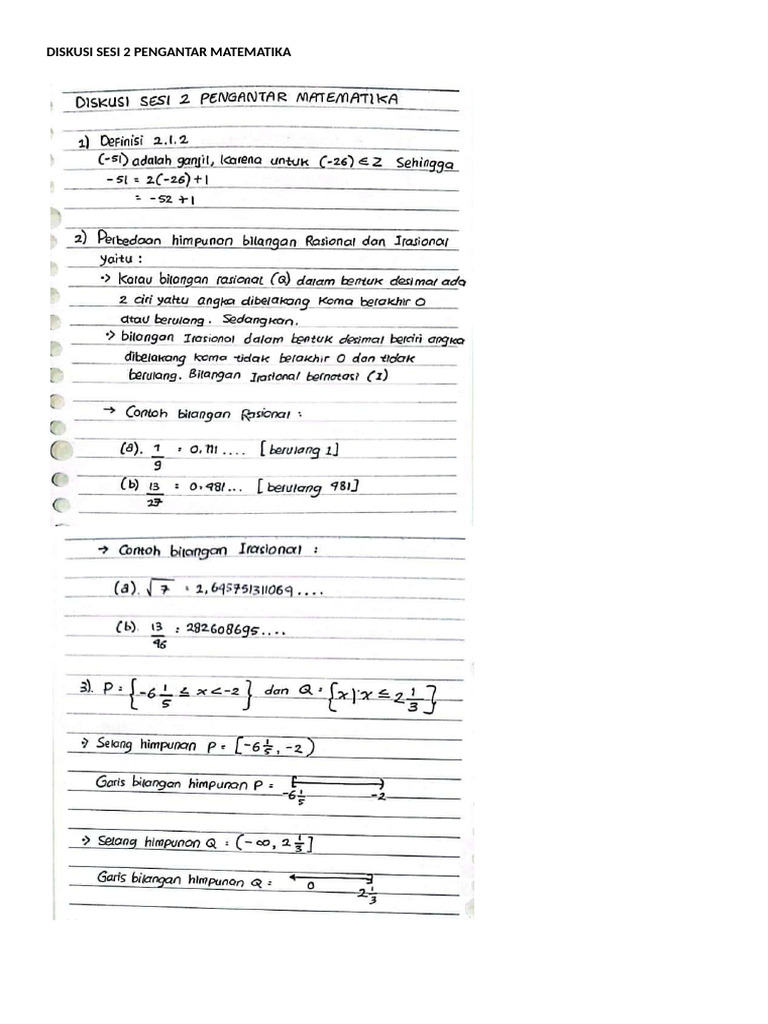 DISKUSI SESI 2 PENGANTAR MATEMATIKA
DISKUSI SESI 2 PENGANTAR MATEMATIKA
1) Definisi 2.1.2
(-51) adalah ganjil, karena untuk (-26) ∈ Z Sehingga
-51 = 2(-26)+1
= -52 +1
2) Perbedaan himpunan bilangan Rasional dan Irasional
yaitu :
·> Kalau bilangan rasional (Q) dalam bentuk desimal ada
2 ciri yaitu angka dibelakang koma berakhir 0
atau berulang. Sedangkan.
·> bilangan Irasional dalam bentuk desimal berciri angka
dibelakang koma tidak berakhir 0 dan tidak
berulang. Bilangan Irasional bernotasi (I)
→ Contoh bilangan Rasional :
(a). 1/9 = 0,111.... [berulang 1]
(b) 13/27 = 0,481... [berulang 481]
→ Contoh bilangan Irasional :
(a). √7 = 2,645751311064....
(b). 13/46 = 282608695....
3). P = {-6 1/5 ≤ x < -2} dan Q = {x|x ≤ 2 1/3}
·> Selang himpunan P = [-6 1/5, -2)
Garis bilangan himpunan P =
-6 1/5 -2
·> Selang himpunan Q = (-∞, 2 1/3]
Garis bilangan himpunan Q =
0 2 1/3